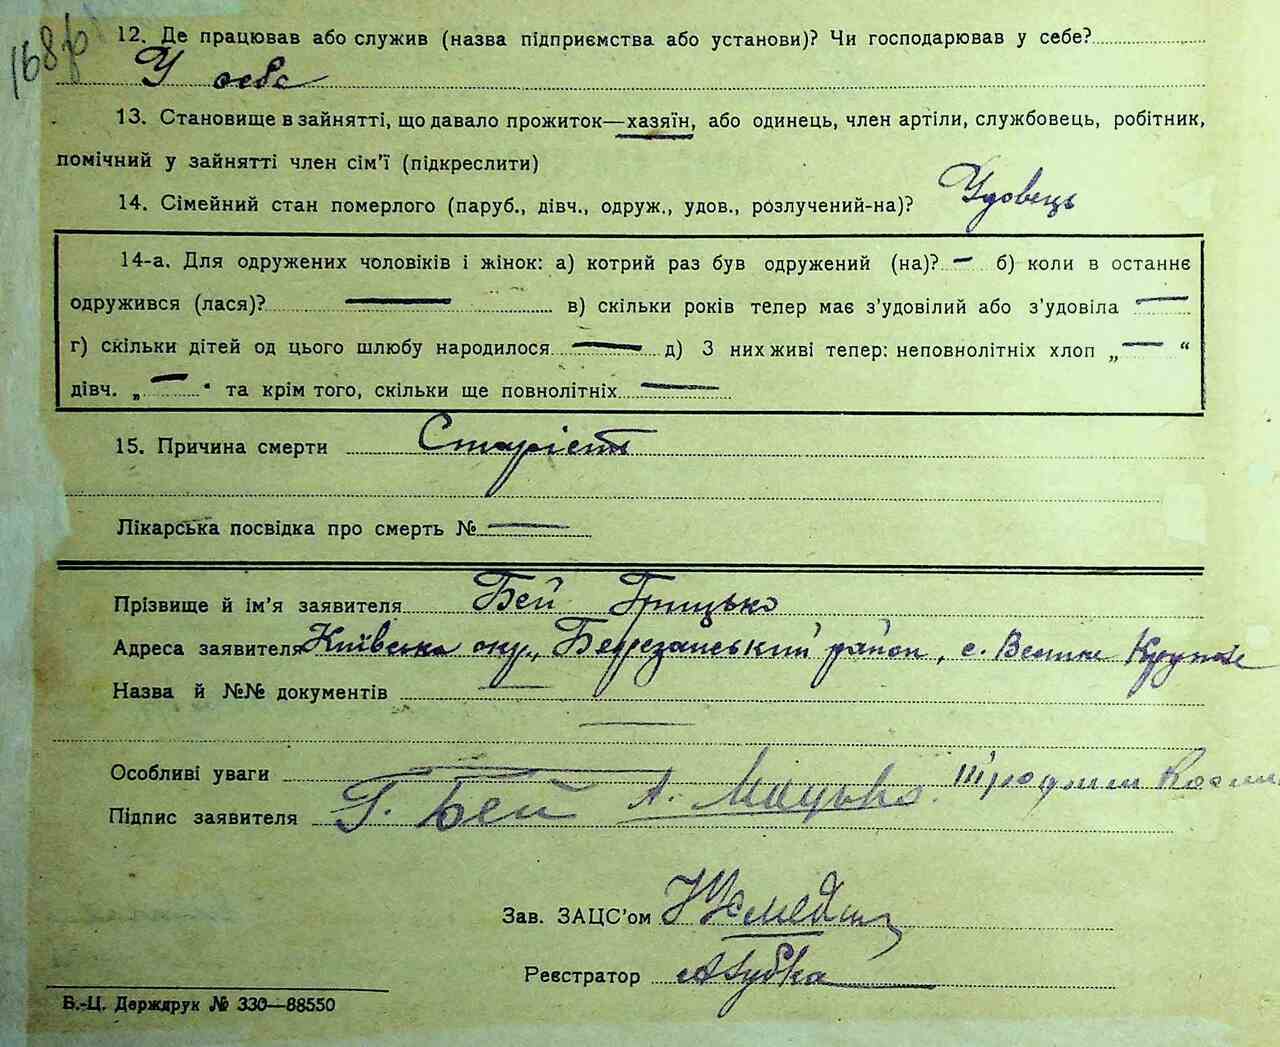 168
12. Де працював або служив (назва підприємства або установи)? Чи господарював у себе?
У себе
13. Становище в зайнятті, що давало прожиток—хазяїн, або одинець, член артіли, службовець, робітник,
помічний у зайнятті член сім'ї (підкреслити)
14. Сімейний стан померлого (паруб., дівч., одруж., удов., розлучений-на)? Удовець
14-а. Для одружених чоловіків і жінок: а) котрий раз був одружений (на)? — б) коли в останнє
одружився (лася)? — в) скільки років тепер має з'удовілий або з'удовіла —
г) скільки дітей од цього шлюбу народилося — д) З них живі тепер: неповнолітніх хлоп „—“
дівч. „—“ та крім того, скільки ще повнолітніх —
15. Причина смерти Старість
Лікарська посвідка про смерть № —
Прізвище й ім'я заявителя Бей Грицько
Адреса заявителя Київська окр., Березанський район, с. Велике Крупол
Назва й №№ документів —
Особливі уваги —
Підпис заявителя Г. Бей А. Мацько.
Зав. ЗАЦС'ом
Реєстратор
Б.-Ц. Держдрук № 330—88550